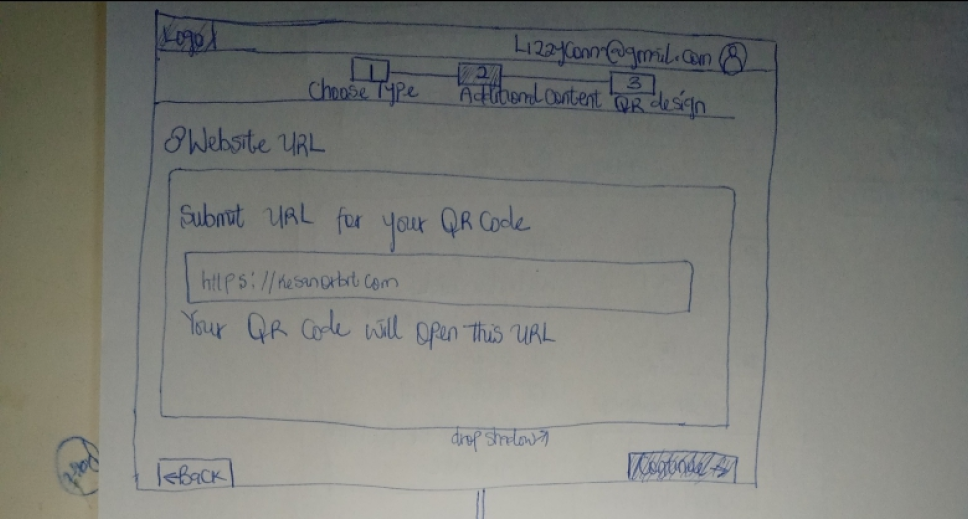 Logo
Lizzyconn@gmail.com
1 2 3
Choose Type Additional content QR design
Website URL
Submit URL for your QR Code
https://
Your QR Code will open this URL
drop shadow
←Back